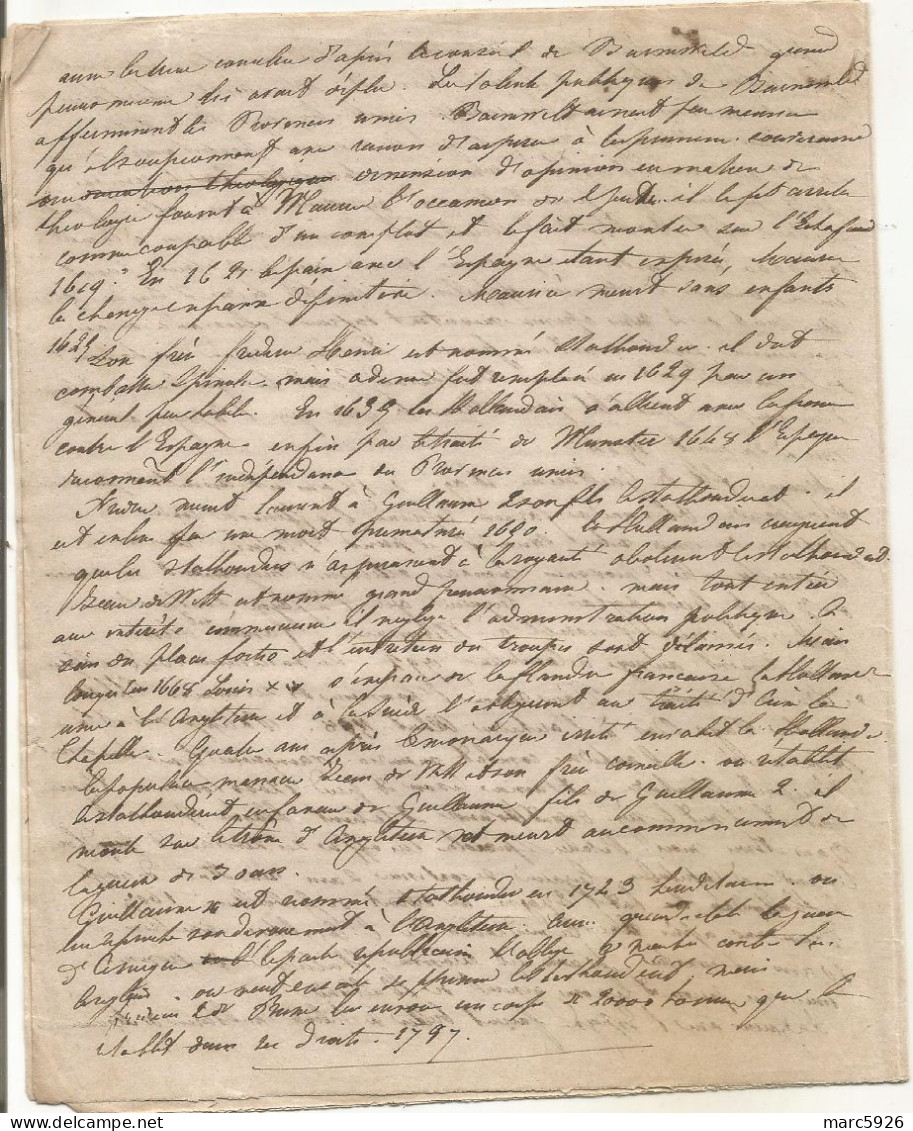 d'après le conseil de Barneveld grand
pensionnaire. Les talents politiques de Barneveld
affermirent les Provinces unies. Barneveld
qu'il soupçonnait avec raison d'aspirer à la puissance souveraine
ou dissension d'opinion en matière de
théologie fournit à Maurice l'occasion de le perdre. il le fit arrêter
comme coupable d'un complot et le fait monter sur l'Echafaud
1619. En 16 la paix avec l'Espagne étant expirée, Maurice
la change en paix définitive. Maurice meurt sans enfants
1625
Son frère frédéric Henri est nommé Stathouder. il doit
combattre Spinola. mais ce dernier fut remplacé en 1629 par un
général peu habile. En 1635 les Hollandais s'allient avec la france
contre l'Espagne enfin par le traité de Munster 1648 l'Espagne
reconnait l'indépendance des Provinces unies.
frédéric meurt laissant à Guillaume 2 son fils le stathoudérat. il
est enlevé par une mort prématurée 1650. les Hollandais craignant
que les stathouders n'aspirassent à la royauté abolirent le stathoudérat.
Jean de Witt est nommé grand pensionnaire. mais tout entier
aux intérêts du commerce il néglige l'administration publique. le
soin des places fortes et l'entretien des troupes sont délaissés. Mais
lorsqu'en 1668 Louis XIV s'empare de la flandre française la Hollande
unie à l'Angleterre et à la Suède l'obligent au traité d'Aix la
Chapelle. Quatre ans après le monarque irrité envahit la Hollande
la populace massacre Jean de Witt et son frère corneille. on rétablit
le stathoudérat en faveur de Guillaume fils de Guillaume 2. il
monte sur le trône d'Angleterre et meurt au commencement de
la guerre de 7 ans.
Guillaume est nommé stathouder en 1743 héréditaire. on
lui reproche son dévouement à l'Angleterre. aussi quand éclate la guerre
d'Amérique le parti républicain l'oblige à contre les
Anglais. on veut ensuite supprimer le stathoudérat, mais
de Prusse lui envoie un corps de 20000 hommes qui le
rétablit dans ses droits. 1797.
marc5926